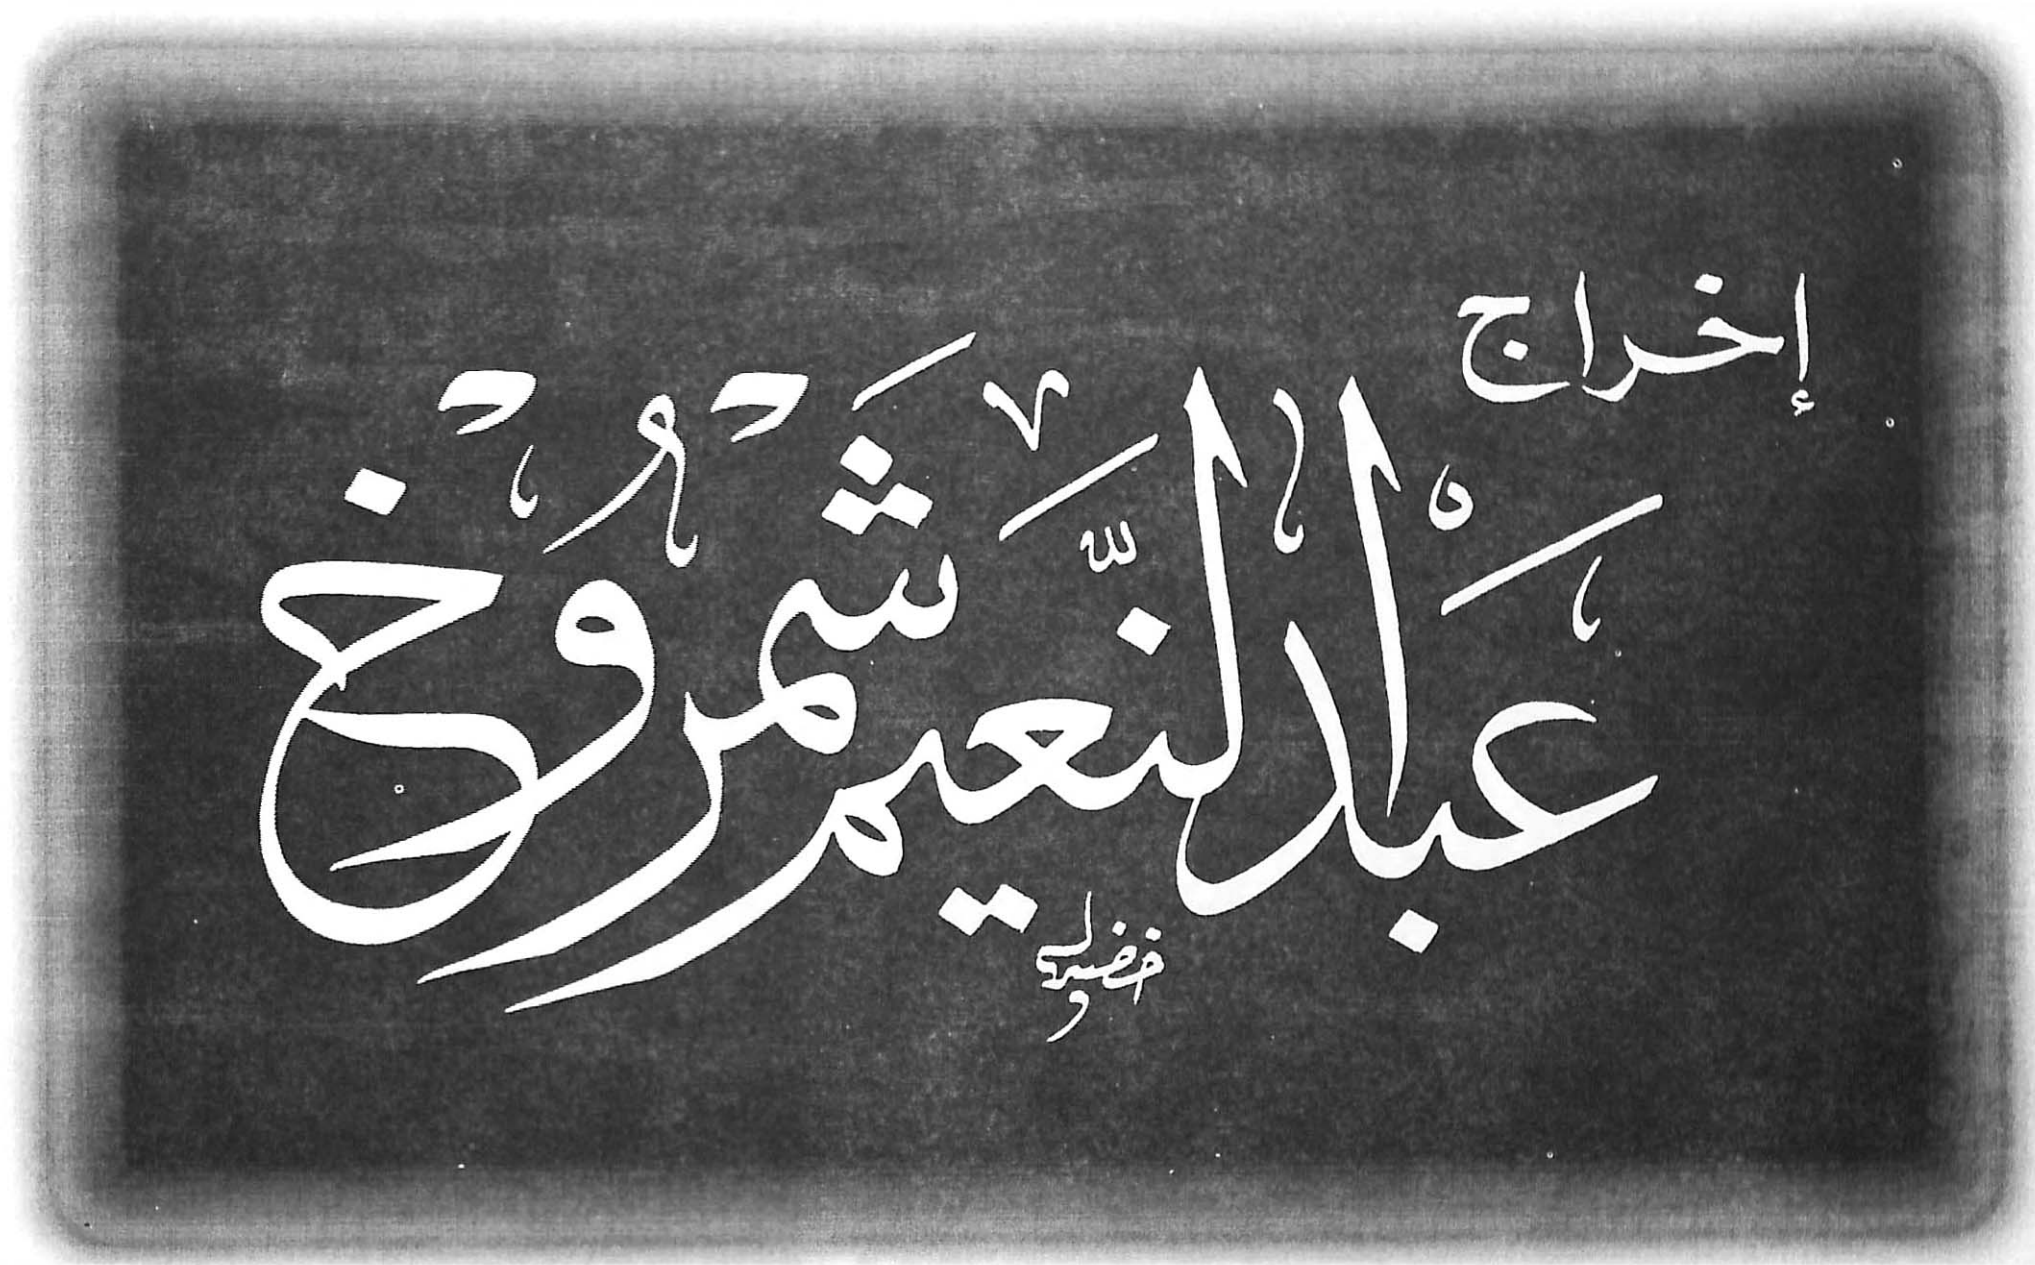 إخراج
عبد النعيم شمروخ